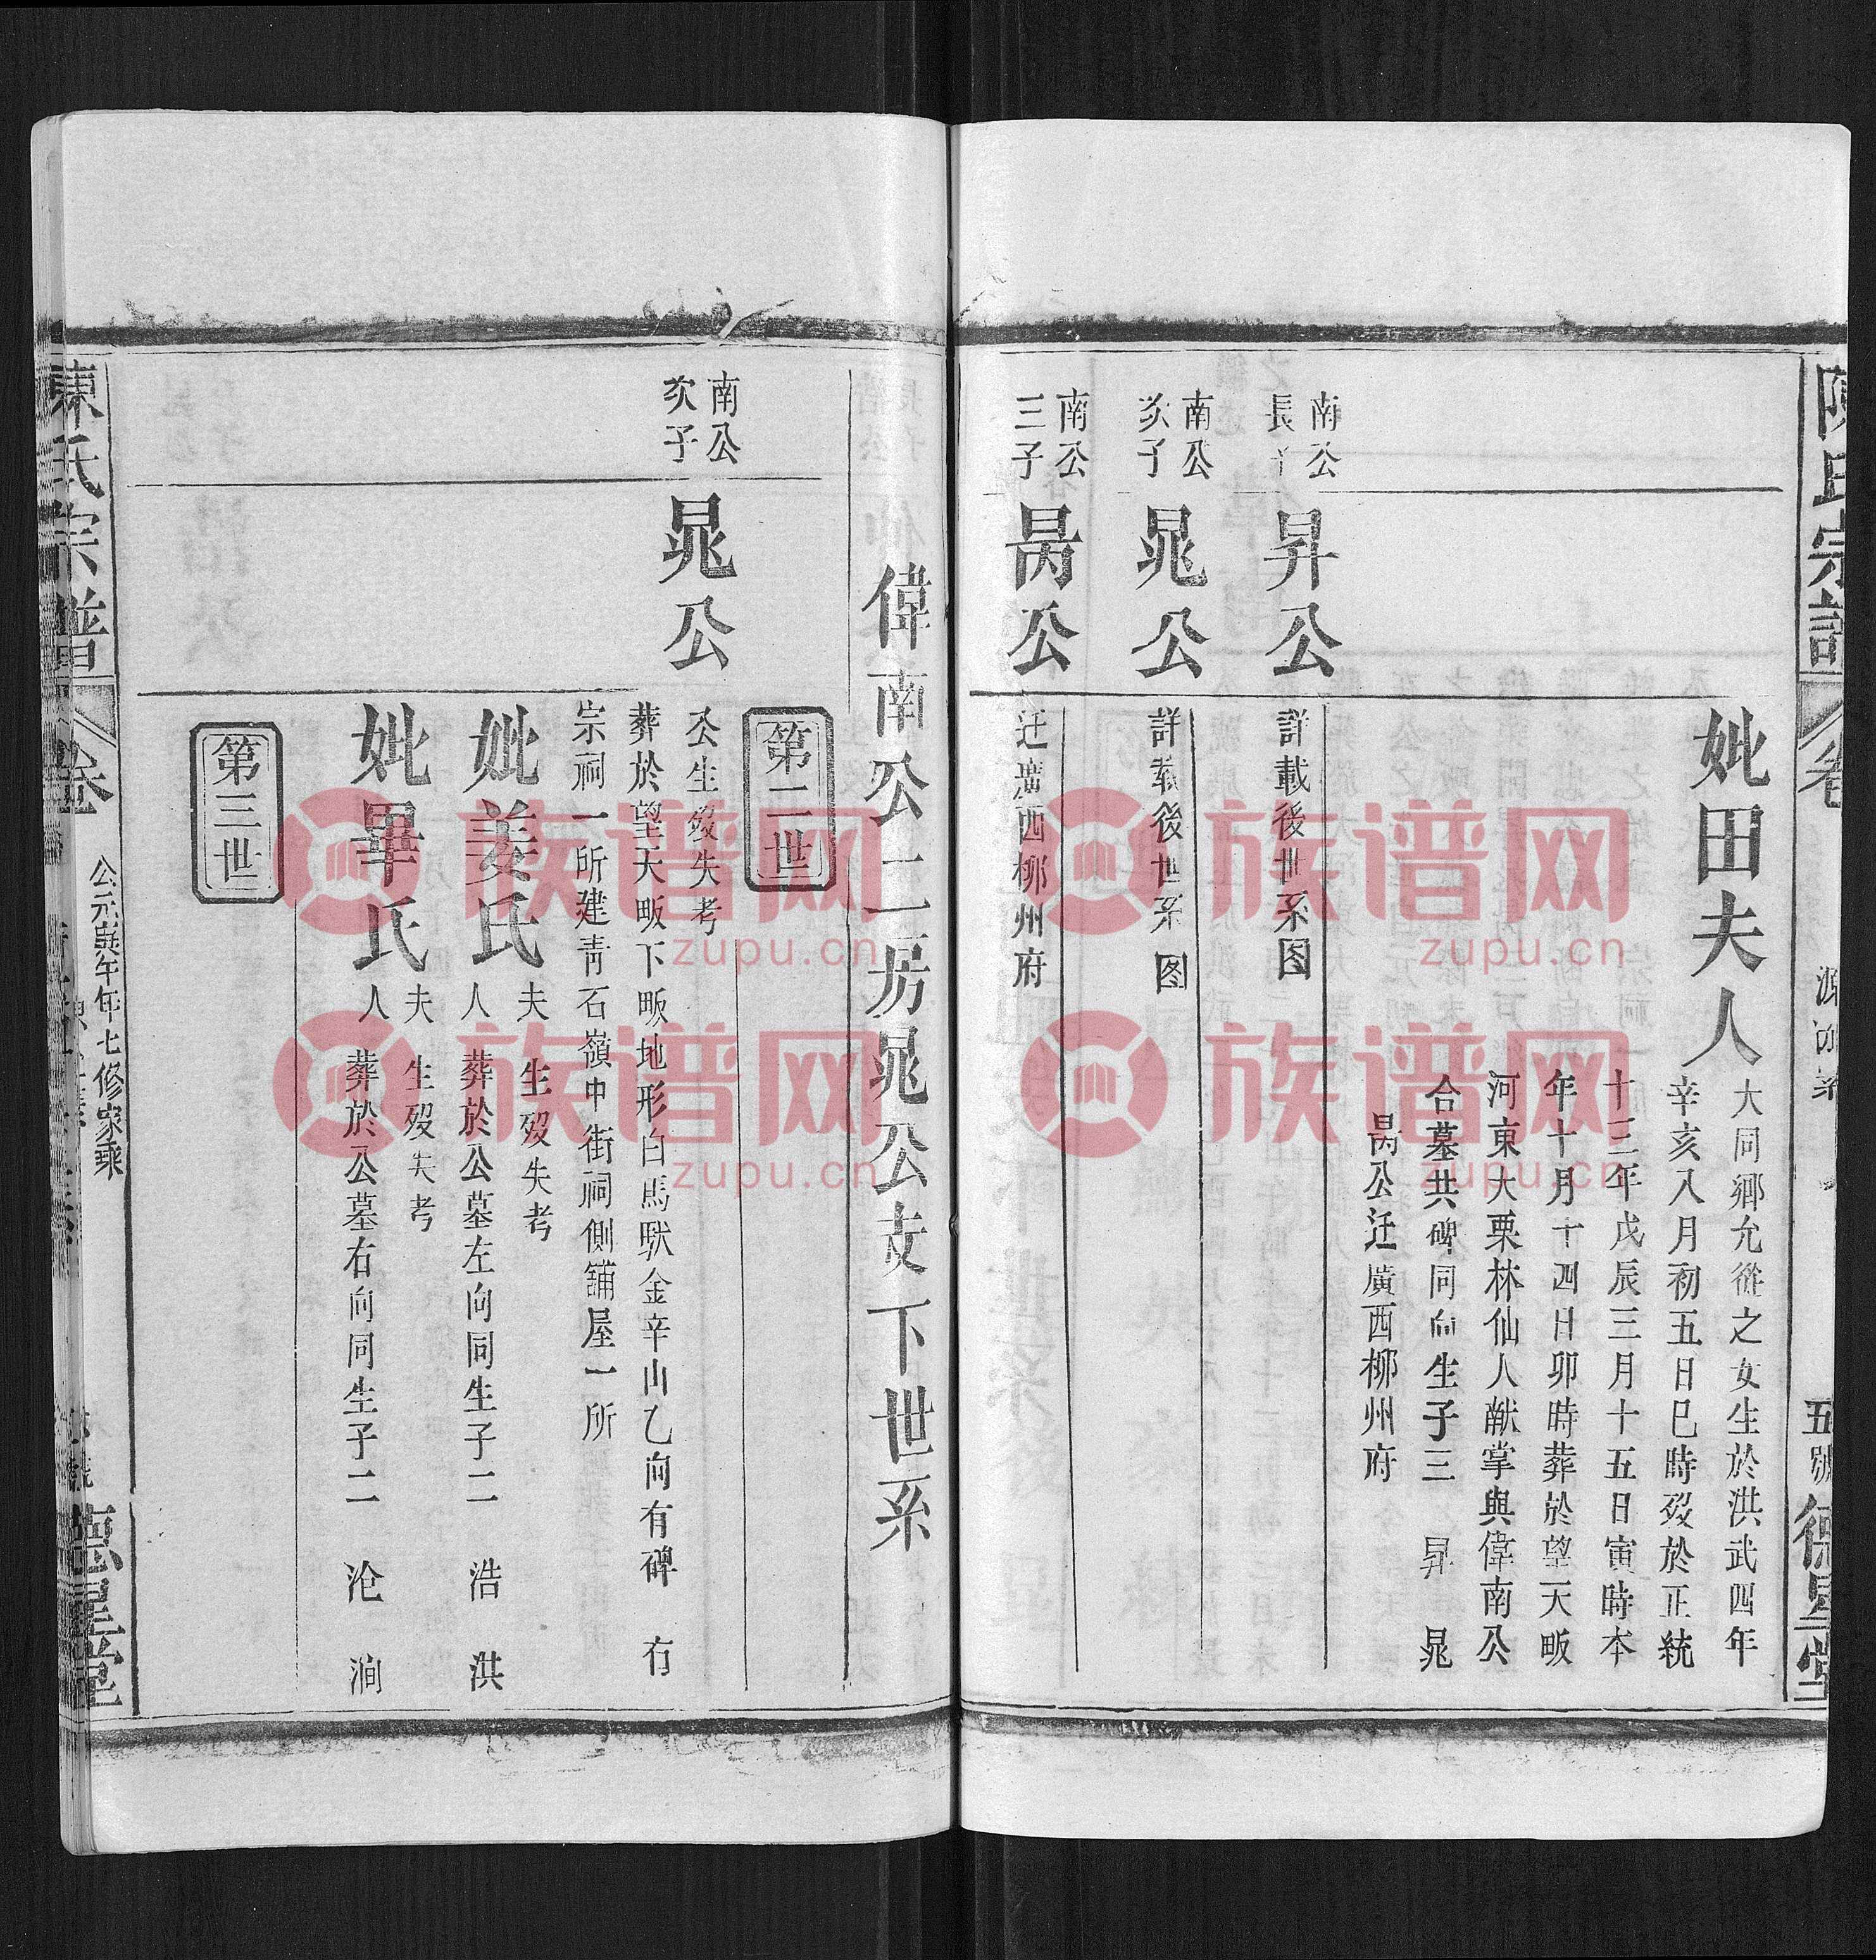 妣田夫人
大同鄉允從之女生於洪武四年
辛亥八月初五日巳時歿於正統
十三年戊辰三月十五日寅時本
年十月十四日卯時葬於望天畈
河東大栗林仙人献掌與偉南公
合墓共碑同向生子三 昇 晁
昺公迁廣西柳州府
南公
長子
昇公
詳載後世系图
南公
次子
晁公
詳載後世系图
南公
三子
昺公
迁廣西柳州府
五號
偉南公二房晁公支下世系
第二世
南公
次子
晁公
公生歿失考
葬於望天畈下畈地形白馬馱金辛山乙向有碑 有
宗祠一所建靑石嶺中街祠側舖屋一所
妣姜氏
夫
人
生歿失考
葬於公墓左向同生子二 浩 洪
妣畢氏
夫
人
生歿失考
葬於公墓右向同生子二 沦 澗
第三世
陳氏宗譜
卷
公元庚午年七修家乘
德星堂
族谱网
zupu.cn
族谱网
zupu.cn
族谱网
zupu.cn
族谱网
zupu.cn